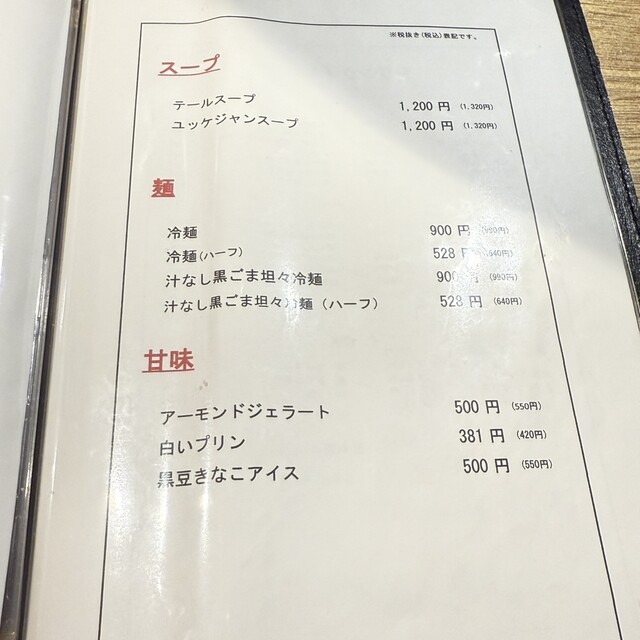 ※税抜き(税込)表記です。
スープ
テールスープ 1,200 円 (1,320円)
ユッケジャンスープ 1,200 円 (1,320円)
麺
冷麺 900 円 (990円)
冷麺(ハーフ) 528 円 (640円)
汁なし黒ごま坦々冷麺 900 円 (990円)
汁なし黒ごま坦々冷麺(ハーフ) 528 円 (640円)
甘味
アーモンドジェラート 500 円 (550円)
白いプリン 381 円 (420円)
黒豆きなこアイス 500 円 (550円)